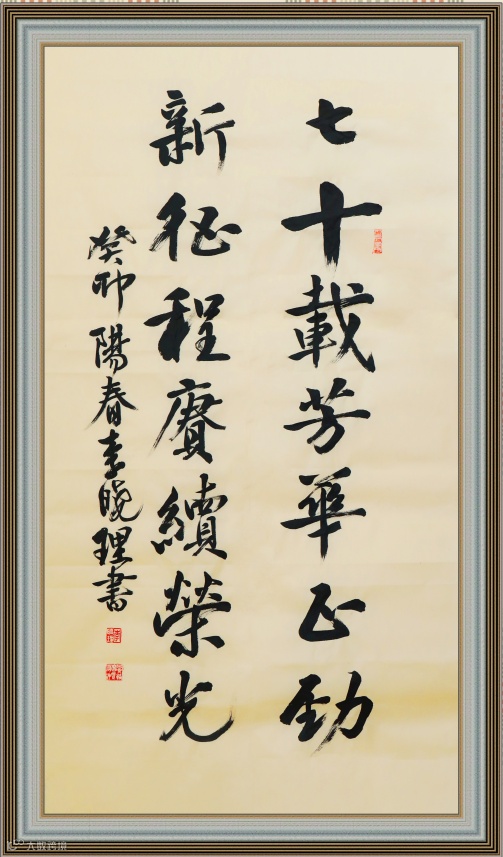 七十載芳華正勁
新征程賡續榮光
癸卯陽春李曉理書
大数跨境